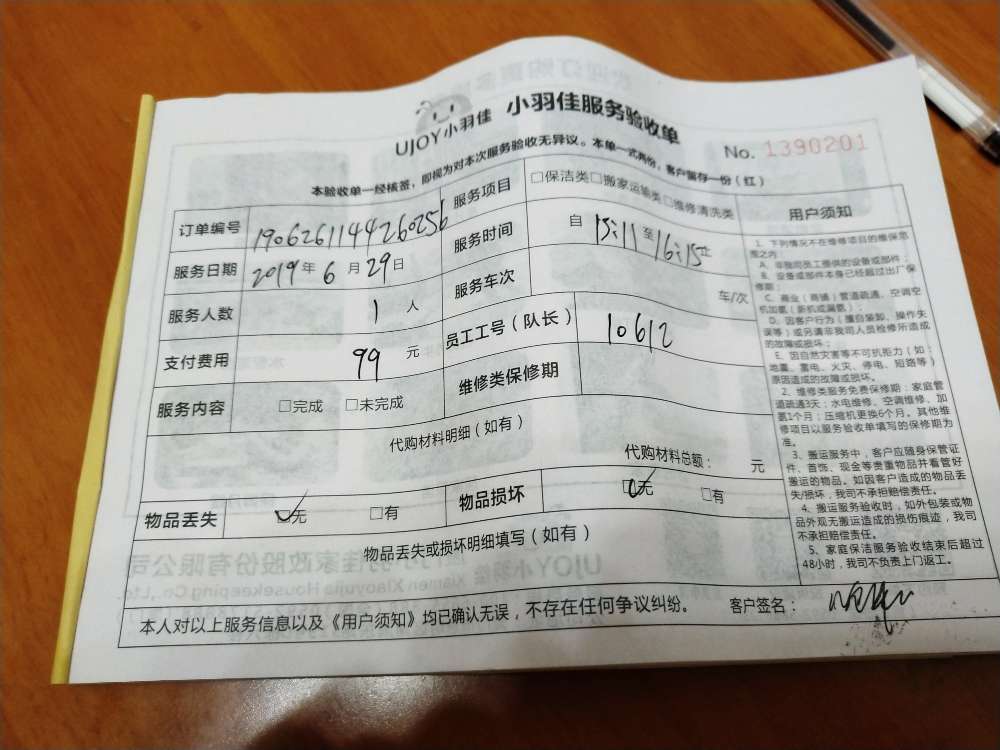 UJOY小羽佳 小羽佳服务验收单
No. 1390201
本验收单一经核签，即视为对本次服务验收无异议。本单一式两份，客户留存一份（红）
订单编号 1906261144260256 服务项目 □保洁类□搬家运输类□维修清洗类
服务日期 2019年6月29日 服务时间 自 15:11 至 16:15止
服务人数 1 人 服务车次 车/次
支付费用 99 元 员工工号（队长） 10612
服务内容 □完成 □未完成 维修类保修期
代购材料明细（如有）
代购材料总额： 元
物品丢失 □无 □有 物品损坏 □无 □有
物品丢失或损坏明细填写（如有）
用户须知
1、下列情况不在维修项目的维保范
围之内
A、非我司员工提供的设备或部件；
B、设备或部件本身已经超过出厂保
修期；
C、商业（商铺）管道疏通、空调空
机加氨（新机或漏氨）；
D、因客户行为（擅自装卸、操作失
误等）或另请非我司人员检修所造成
的故障或损坏；
E、因自然灾害等不可抗拒力（如：
地震、雷电、火灾、停电、短路等）
原因造成的故障或损坏。
2、维修类服务免费保修期：家庭管
道疏通3天；水电维修、空调维修、加
氨1个月；压缩机更换6个月。其他维
修项目以服务验收单填写的保修期为
准。
3、搬运服务中，客户应随身保管证
件、首饰、现金等贵重物品并看管好
搬运的物品。如因客户造成的物品丢
失/损坏，我司不承担赔偿责任。
4、搬运服务验收时，如外包装或物
品外观无搬运造成的损伤痕迹，我司
不承担赔偿责任。
5、家庭保洁服务验收结束后超过
48小时，我司不负责上门返工。
本人对以上服务信息以及《用户须知》均已确认无误，不存在任何争议纠纷。 客户签名：